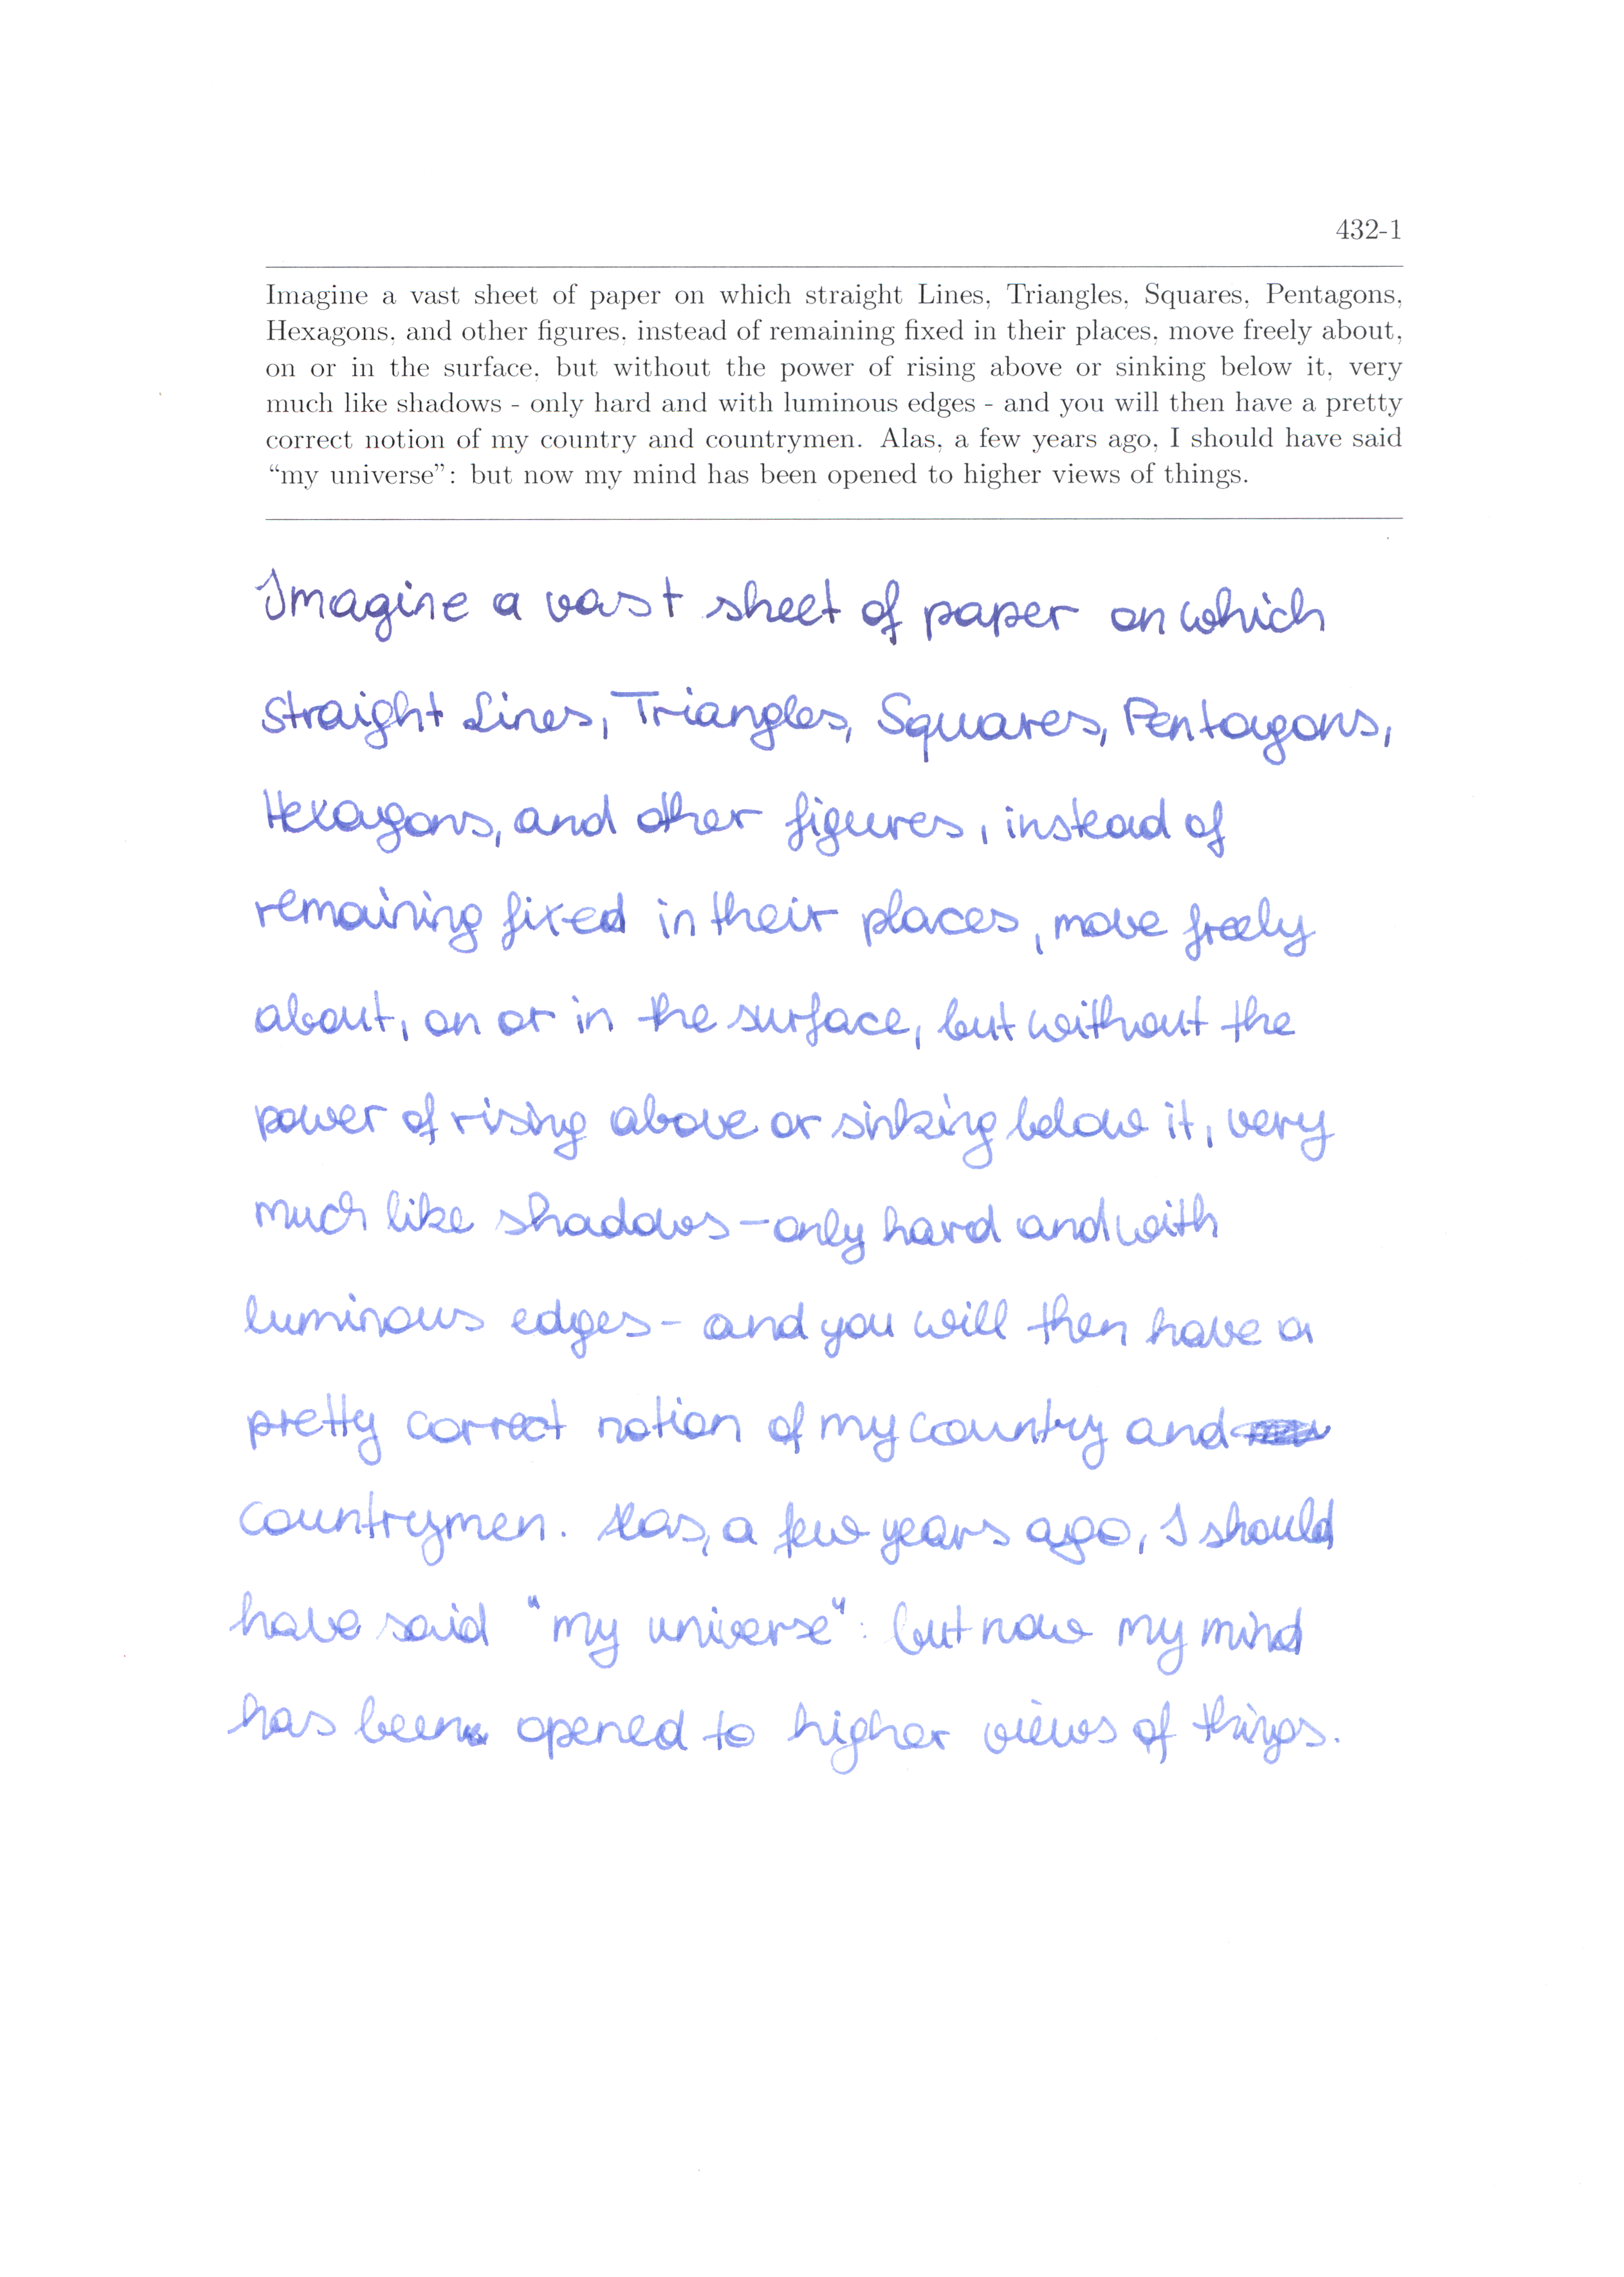 432-1
Imagine a vast sheet of paper on which straight Lines, Triangles, Squares, Pentagons,
Hexagons, and other figures, instead of remaining fixed in their places, move freely about,
on or in the surface, but without the power of rising above or sinking below it, very
much like shadows - only hard and with luminous edges - and you will then have a pretty
correct notion of my country and countrymen. Alas, a few years ago, I should have said
“my universe”: but now my mind has been opened to higher views of things.
Imagine a vast sheet of paper on which
straight Lines, Triangles, Squares, Pentagons,
Hexagons, and other figures, instead of
remaining fixed in their places, move freely
about, on or in the surface, but without the
power of rising above or sinking below it, very
much like shadows - only hard and with
luminous edges - and you will then have a
pretty correct notion of my country and
countrymen. Alas, a few years ago, I should
have said "my universe": but now my mind
has been opened to higher views of things.